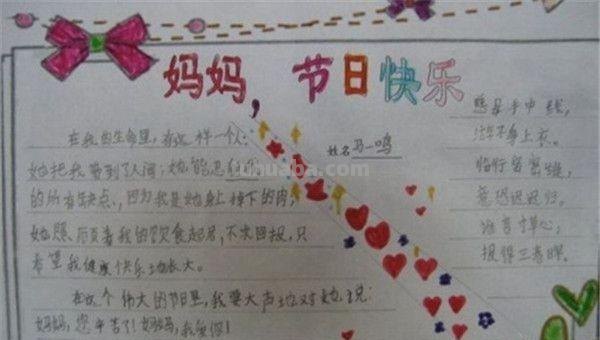 妈妈，节日快乐
姓名 马一鸣
在我的生命里，有这样一个人：
她把我带到了人间；她能忍
的所有缺点，因为我是她身上掉下的肉，
她照顾着我的饮食起居，不求回报，只
希望我健康快乐地长大。
在这个伟大的节日里，我要大声地对她说：
妈妈，您辛苦了！妈妈，我爱你！
慈母手中线，
游子身上衣。
临行密密缝，
意恐迟迟归。
谁言寸草心，
报得三春晖。